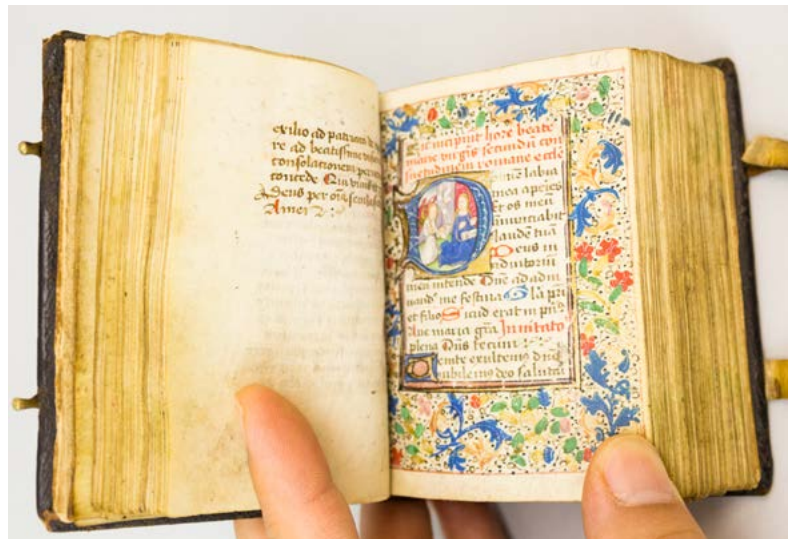 exilio ad patriam
re ad beatissime
consolacionem per
concede Qui vivis et
deus per oīa secula
Amen
Incipiunt hore beate
marie virgīs secundū con
suetudinem romane eccle
n̄e labia
mea aperies
Et os meū
annunciabit
laudē tuā
Deus in
adiutoriū
meū intende Dn̄e ad adiu
uandū me festina Gl̄a pr̄i
et filio Sicud erat in pn̄
Aue maria gr̄a Inuitato
plena Dn̄s tecum
Uenite exultemus dn̄o
iubilemus deo salutari
45